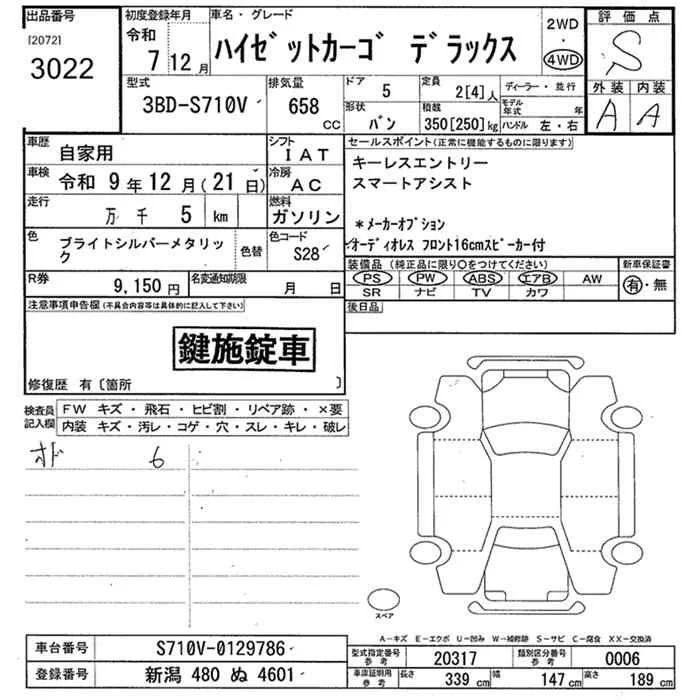 出品番号
[2072]
3022
初度登録年月
令和
7 12月
車名・グレード
ハイゼットカーゴ デラックス
2WD
・
4WD
評価点
S
外装 内装
A A
型式
3BD-S710V
排気量
658
cc
ドア
5
定員
2[4]人
ディーラー・並行
形状
バン
積載
350[250]kg
モデル年式 年
ハンドル 左・右
車歴
自家用
シフト
IAT
車検 令和 9年12月(21日)
冷房
AC
走行
万 千 5 km
燃料
ガソリン
色
ブライトシルバーメタリック
色替
色コード
S28
R券
9,150円
名変通知期限
月 日
セールスポイント(正常に機能するものに限ります)
キーレスエントリー
スマートアシスト
*メーカーオプション
オーディオレス フロント16cmスピーカー付
装備品(純正品に限り○をつけてください)
PS PW ABS エアB AW
SR ナビ TV カワ
新車保証書
有・無
後日品
注意事項申告欄(不具合内容等は具体的に記入して下さい)
鍵施錠車
修復歴 有〔箇所 〕
検査員記入欄
FW キズ・飛石・ヒビ割・リペア跡・×要
内装 キズ・汚レ・コゲ・穴・スレ・キレ・破レ
オド 6
スペア
A－キズ E－エクボ U－凹み W－補修跡 S－サビ C－腐食 XX－交換済
車台番号
S710V-0129786
登録番号
新潟 480 ぬ 4601
型式指定番号
参考
20317
類別区分番号
参考
0006
車庫証明用
参考
長さ
339 cm
幅
147 cm
高さ
189 cm